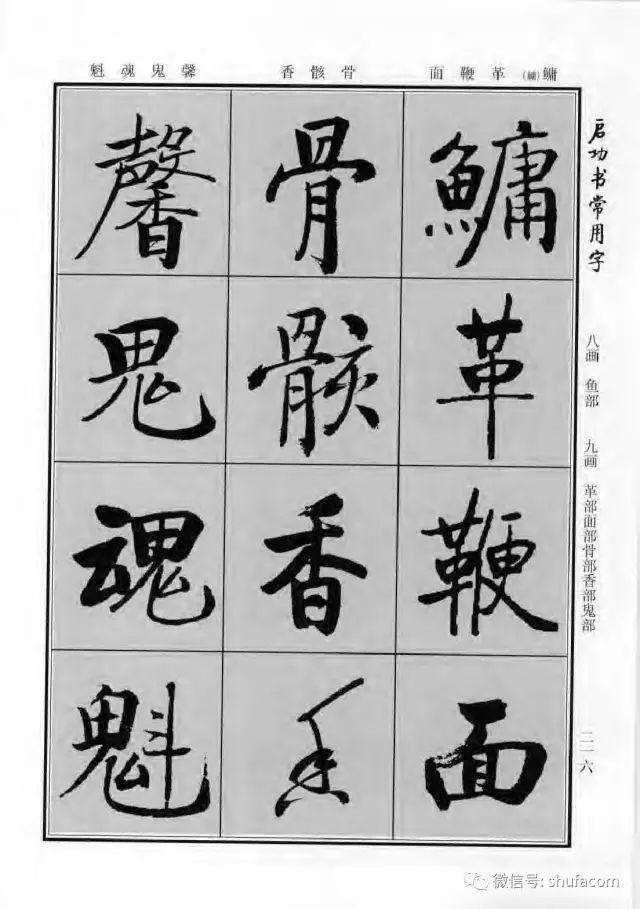 魁魂鬼馨 香骸骨 面鞭革(鱅)鳙
鱅
革
鞭
面
骨
骸
香
香
馨
鬼
魂
魁
启功书常用字
八画 鱼部 九画 革部面部骨部香部鬼部
二一六
微信号: shufacom